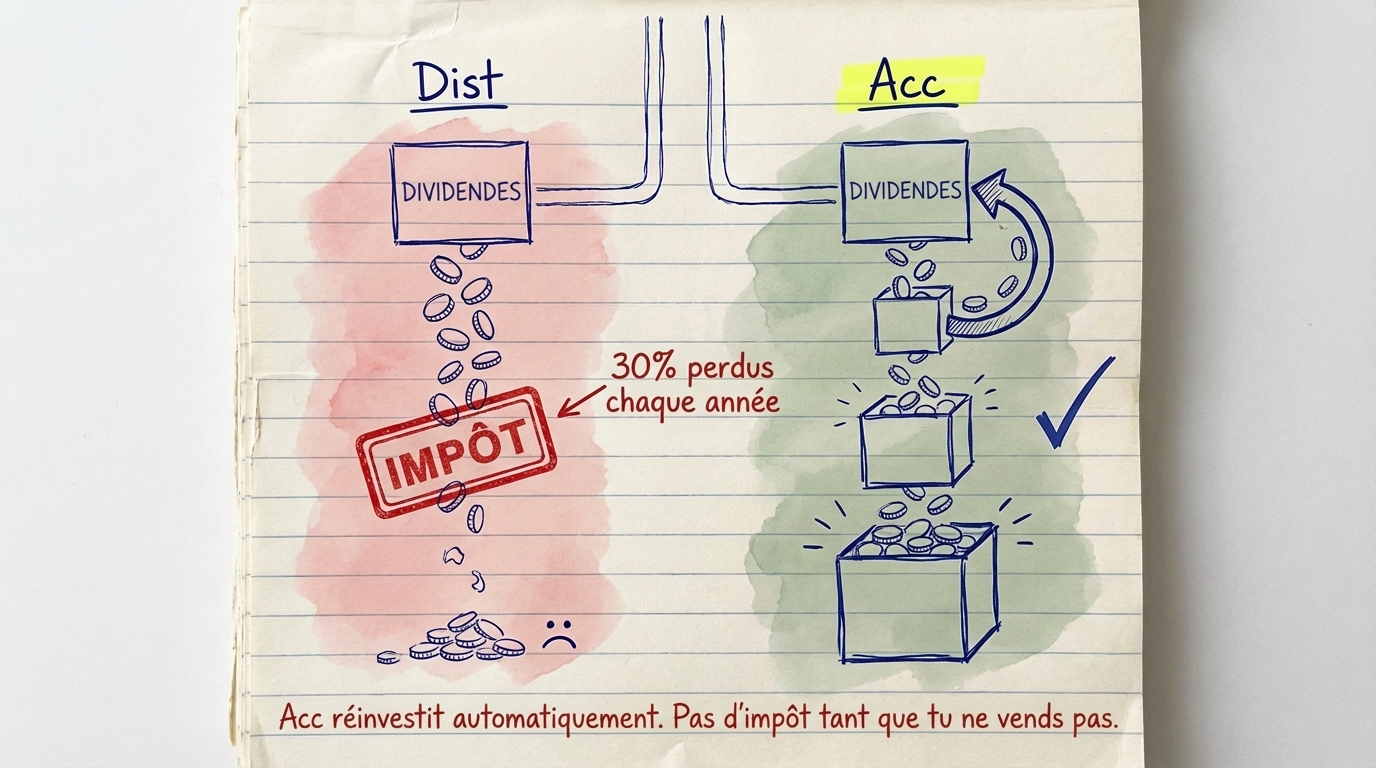 Dist
Acc
DIVIDENDES
DIVIDENDES
30% perdus
chaque année
IMPÔT
Acc réinvestit automatiquement. Pas d'impôt tant que tu ne vends pas.